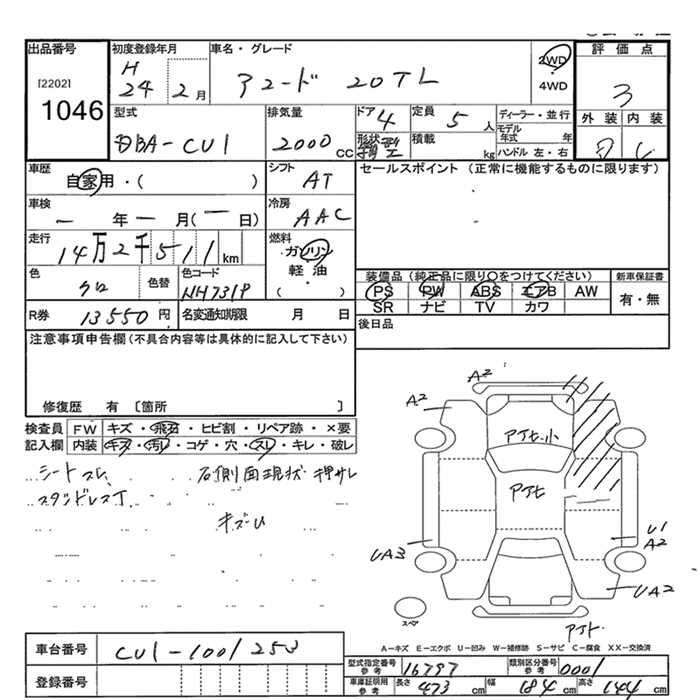 出品番号 初度登録年月 車名・グレード 評価点
[2202] H 24 2月 アコード 20TL 2WD 4WD 3
1046
型式 排気量 ドア 定員 ディーラー・並行 外装 内装
DBA-CU1 2000cc 4 5人 モデル年式 年
形状 積載 kg ハンドル 左・右
車歴 自家用・( ) シフト AT セールスポイント(正常に機能するものに限ります)
車検 - 年 - 月(- 日) 冷房 AAC
走行 14万2千511km 燃料 ガソリン 軽油 ( )
色 クロ 色替 色コード NH731P
装備品(純正品に限り○をつけてください) 新車保証書
PS PW ABS エアB AW 有・無
SR ナビ TV カワ
R券 13550円 名変通知期限 月 日 後日品
注意事項申告欄(不具合内容等は具体的に記入して下さい)
修復歴 有 〔箇所 〕
検査員 FW キズ・飛石・ヒビ割・リペア跡・×要
記入欄 内装 キズ・汚レ・コゲ・穴・スレ・キレ・破レ
シートスレ 右側面現状 押サレ
キズU
A2 A2
アトセ小
アトセ
U1
A2
UA3
UA2
スペア
A-キズ E-エクボ U-凹み W-補修跡 S-サビ C-腐食 XX-交換済
車台番号 CU1-1001253
登録番号
型式指定番号 参考 16797 類別区分番号 参考 0001
車庫証明用 参考 長さ 473cm 幅 184cm 高さ 144cm